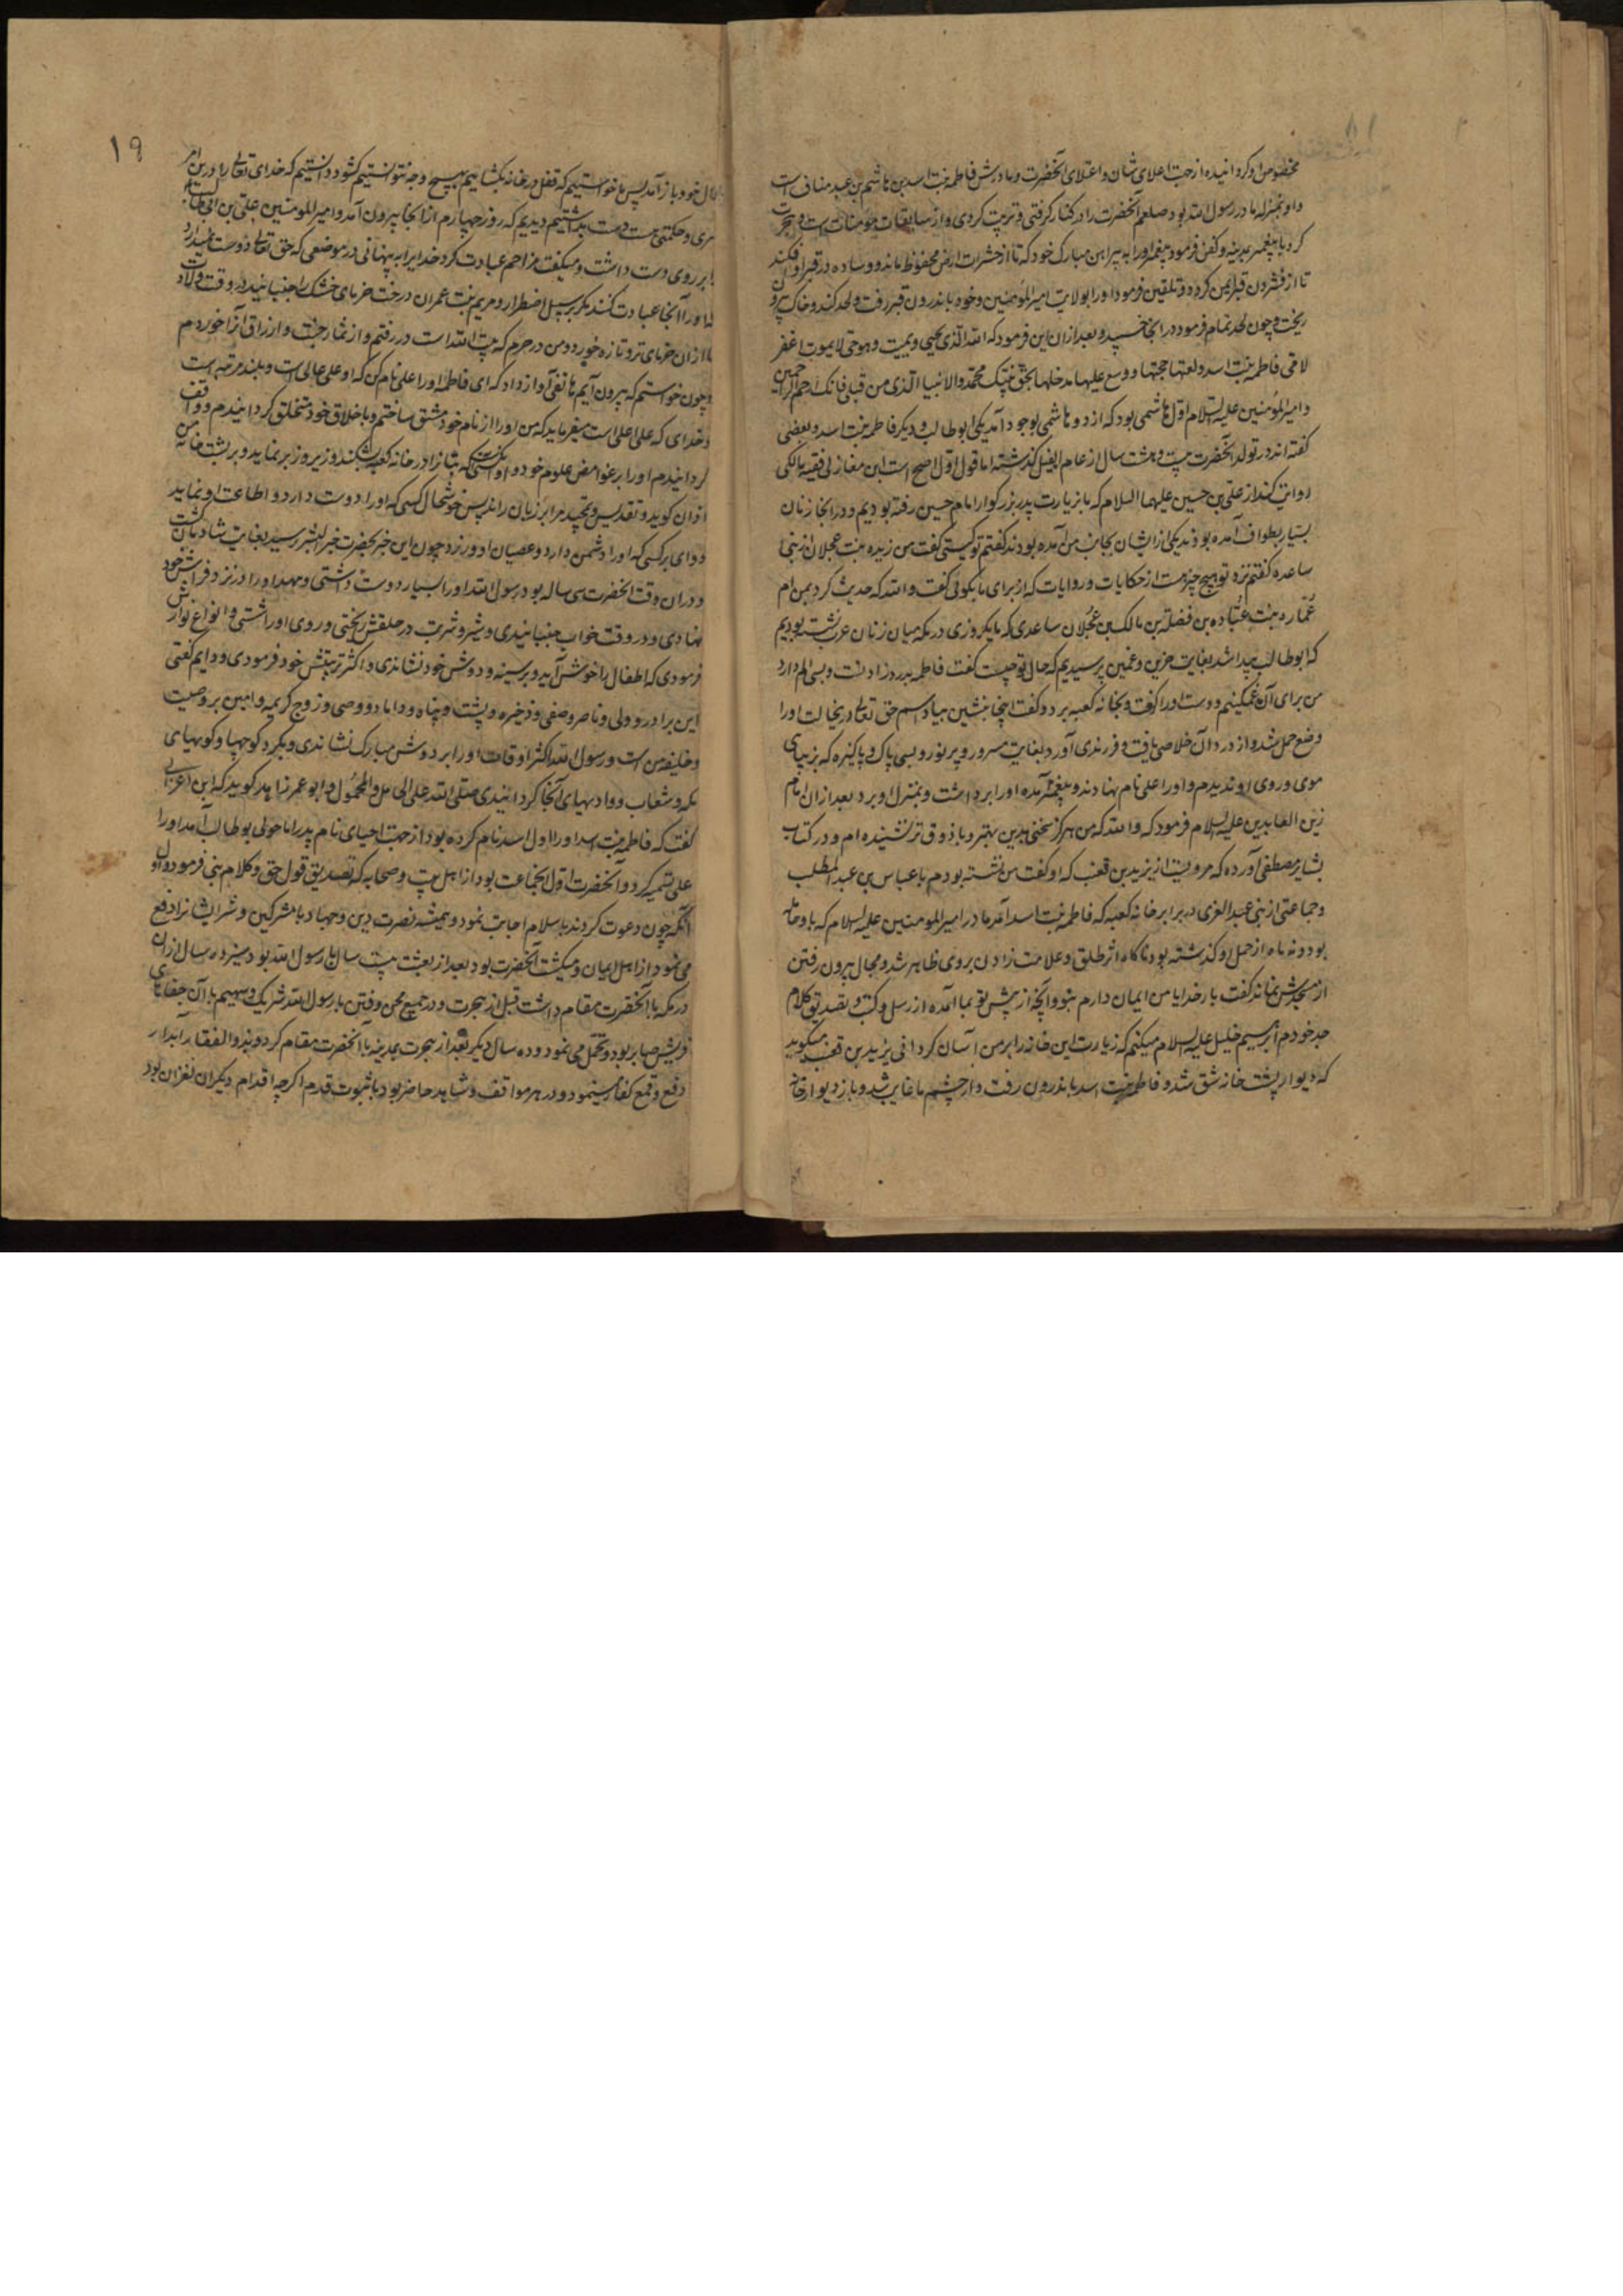 مخصوص او کردانیده از جهت اعلای شان و اعتلای آنحضرت و مادرش فاطمه بنت اسد بن هاشم بن عبد مناف است
و او بمنزله مادر رسول الله بود صلعم آنحضرت را در کنار کرفتی و تربیت کردی و از سابقات مؤمنات است و هجرت
کرد با پیغمبر بمدینه و کفن فرمود پیغمبر او را به پیراهن مبارک خود که تا از حشرات ارض محفوظ ماند و وساده در قبر او افکند
تا از فشردن قبر ایمن کردد و تلقین فرمود او را بولایت امیر المؤمنین و خود باندرون قبر رفت و لحد کند و خاک بیرون
ریخت و چون لحد تمام فرمود در انجا خسپید و بعد از ان این فرمود که الله الذی یحیی و یمیت و هو حی لا یموت اغفر
لامی فاطمه بنت اسد و لقنها حجتها و وسع علیها مدخلها بحق نبیک محمد و الانبیا الذی من قبلی فانک ارحم الراحمین
و امیر المؤمنین علیه السلام اول هاشمی بود که از دو هاشمی بوجود آمد یکی ابو طالب و دیکر فاطمه بنت اسد و بعضی
کفته اند در تولد آنحضرت بیست و هشت سال از عام الفیل کذشته اما قول اول اصح است ابن مغازلی فقیه مالکی
روایت کند از علی بن حسین علیهما السلام که ما بزیارت پدر بزرکوار امام حسین رفته بودیم و در انجا زنان
بسیار بطواف آمده بودند یکی از ایشان بجانب من آمده بودند کفتم تو کیستی کفت من زیده بنت عجلان از بنی
ساعده کفتم نزد تو هیچ چیز هست از حکایات و روایات که از برای ما بکوئی کفت والله که حدیث کرد بمن ام
عماره بنت عباده بن فضله بن مالک بن عجلان ساعدی که ما یکروزی در مکه میان زنان عرب نشسته بودیم
که ابو طالب پیدا شد بغایت حزین و غمین پرسیدیم که حال تو چیست کفت فاطمه بدرد زادنست و بسی الم دارد
من برای آن غمکینم و دست او را کرفت و بخانه کعبه برد و کفت اینجا بنشین بیاد اسم حق تعالی در یخالت او را
وضع حمل شد و از درد آن خلاصی یافت و فرزندی آورد بغایت مسرور و پر نور و بسی پاک و پاکیزه که بزیبای
موی و روی او ندیدم و او را علی نام نهادند و پیغمبر آمده او را برداشت و بمنزل او برد بعد از ان امام
زین العابدین علیه السلام فرمود که والله که من هرکز سخنی بدین بهتر و باذوق تر نشنیده ام و در کتاب
بشایر مصطفی آورده که مرویست از یزید بن قعنب که او کفت من نشسته بودم با عباس بن عبد المطلب
و جماعتی از بنی عبد العزی در برابر خانه کعبه که فاطمه بنت اسد آمد مادر امیر المومنین علیه السلام که باو حامله
بود و نه ماه از حمل او کذشته بود ناکاه اثر طلق و علامت زادن بر وی ظاهر شد و مجال بیرون رفتن
از مسجدش نماند کفت بار خدایا من ایمان دارم بتو و آنچه از پیش تو بما آمده از رسل و کتب و تصدیق کلام
جد خودم ابراهیم خلیل علیه السلام میکنم که زیارت این خانه را بر من آسان کردانی یزید بن قعنب میکوید
که دیوار پشت خانه شق شد و فاطمه بنت اسد باندرون رفت و از چشم ما غایب شد و باز دیوار خانه
۱۹
بحال خود باز آمد پس ما خواستیم که قفل در خانه بکشاییم بهیچ وجه نتوانستیم کشود دانستیم که خدای تعالی را درین امر
سری و حکمتی هست دست بداشتیم دیدیم که روز چهارم از انجا بیرون آمد و امیر المومنین علی بن ابی طالب
را بر روی دست داشت و میکفت مزاحم عبادت کرد خدایرا به پنهانی در موضعی که حق تعالی دوست نمیدارد
که او را آنجا عبادت کنند مکر بر سبیل اضطرار و مریم بنت عمران درخت خرمای خشک را جنبانید در وقت ولادت
تا از آن خرمای تر و تازه خورد و من در حرم که بیت الله است در رفتم و از ثمار جنت و ارزاق آنرا خوردم
و چون خواستم که بیرون آیم هاتفی آواز داد که ای فاطمه او را علی نام کن که او علی عالی است و بلند مرتبه است
و خدای که علی اعلی است میفرماید که من او را از نام خود مشتق ساختم و با خلاق خود متخلق کردانیدم و واقف
کردانیدم او را بر غوامض علوم خود و او کسی است که بتانرا در خانه کعبه بشکند و زیر و زبر نماید و بر پشت خانه من
اذان کوید و تقدیس و تمجید مرا بر زبان راند پس خوشحال کسی که او را دوست دارد و اطاعت او نماید
و وای بر کسی که او را دشمن دارد و عصیان او ورزد چون این خبر بحضرت خیر البشر رسید بغایت شادمان کشت
و در ان وقت آنحضرت سی ساله بود رسول الله او را بسیار دوست داشتی و مهد او را در نزد فراش خود
نهادی و در وقت خواب جنبانیدی و شیر و شربت در حلقش ریختی و روی او را شستی و انواع نوازش
فرمودی که اطفال را خوش آید و بر سینه و دوش خود نشاندی و اکثر تربیتش خود فرمودی و دایم کفتی
این برادر و ولی و ناصر و صفی و ذخیره و پشت و پناه و داماد و وصی و زوج کریمه و امین بر وصیت
و خلیفه من است و رسول الله اکثر اوقات او را بر دوش مبارک نشاندی و بکرد کوهها و کوههای
مکه و شعاب و وادیهای آنجا کردانیدی صلی الله علی الحامل و المحمول و ابو عمر زاهد کوید که ابن اعرابی
کفت که فاطمه بنت اسد او را اول اسد نام کرده بود از جهت احیای نام پدر اما چون ابو طالب آمد او را
علی تسمیه کرد و آنحضرت اول انجماعت بود از اهل بیت و صحابه که تصدیق قول حق و کلام نبی فرمود و او اول
آنکه چون دعوت کردند باسلام اجابت نمود و همیشه نصرت دین و جهاد با مشرکین و شر ایشانرا دفع
می نمود از اهل ایمان و میکشت آنحضرت بود بعد از بعثت بیست سال با رسول الله بود سیزده سال از ان
در مکه با آنحضرت مقام داشت قبل از هجرت و در جمیع محن و فتن با رسول الله شریک و سهیم با آن جفاهای
قریش صابر بود و تحمل می نمود و ده سال دیکر بعد از هجرت بمدینه با آنحضرت مقام کرد و بذو الفقار آبدار
دفع و قمع کفار مینمود و در هر مواقف و مشاهد حاضر بود با ثبوت قدم اکرچه اقدام دیکران لغزان بود